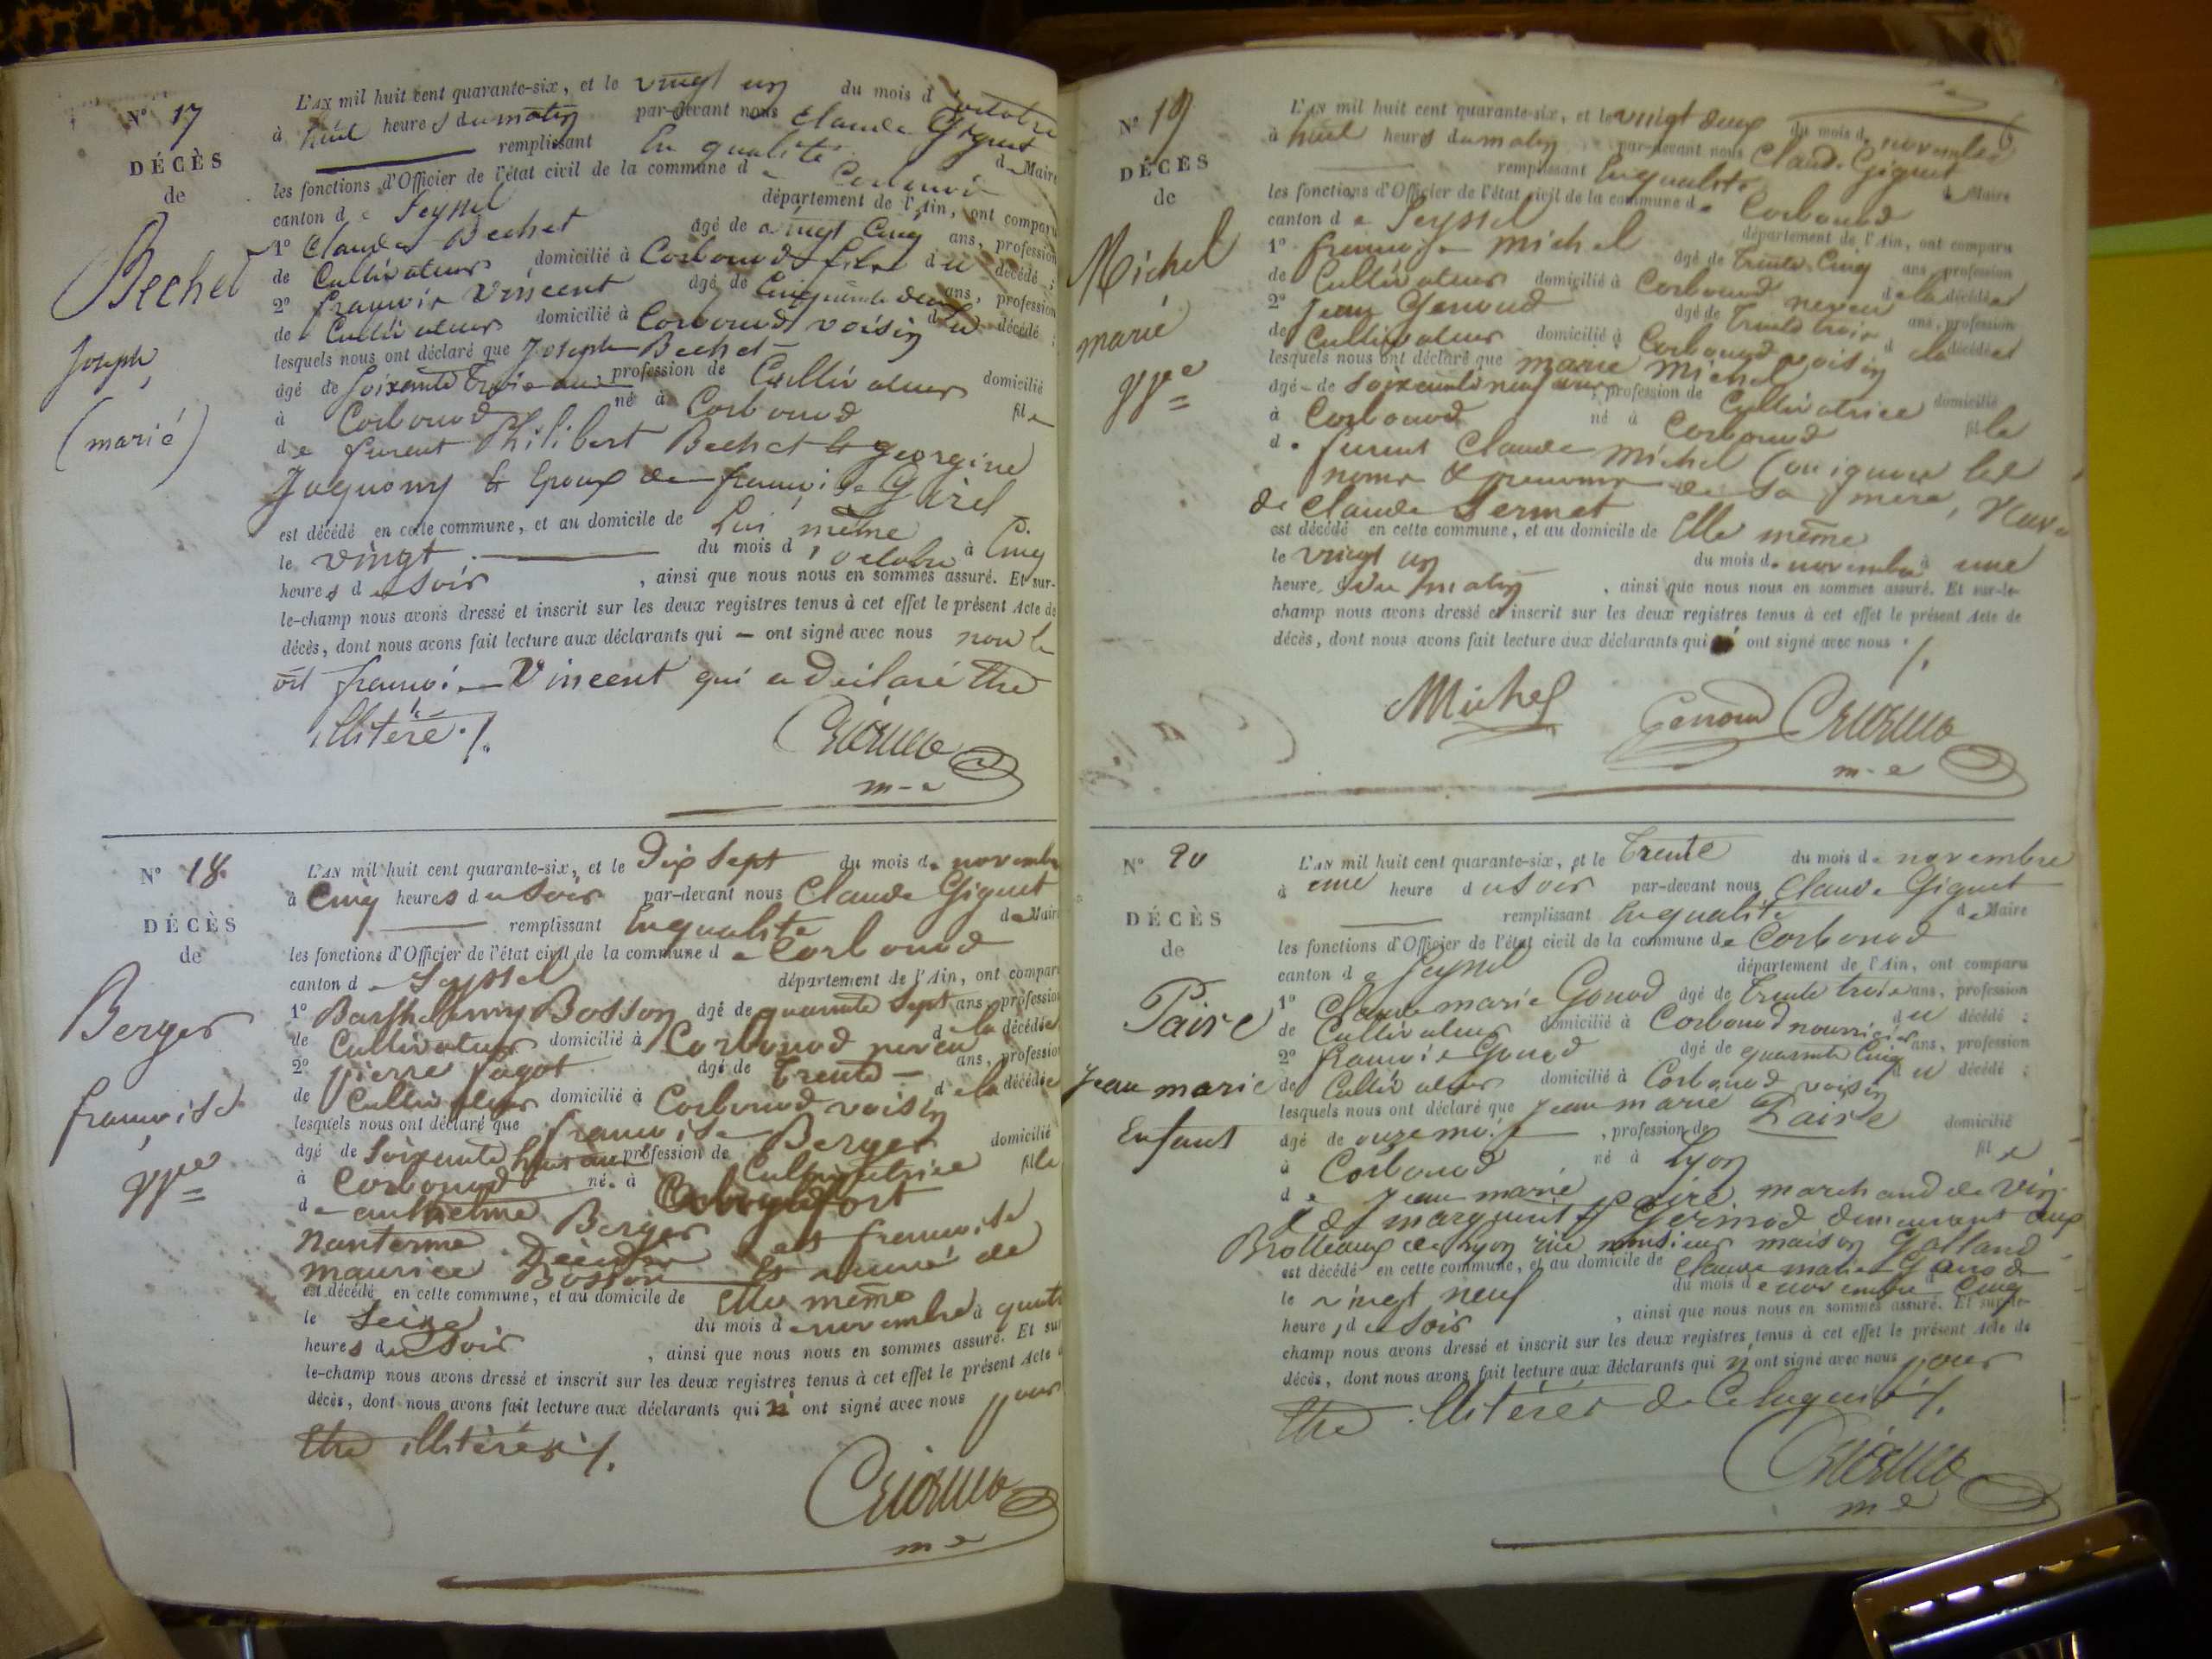 N° 17
DÉCÈS
de
Bechet
Joseph
(marié)
L'AN mil huit cent quarante-six, et le vingt un du mois d'octobre
à huit heures du matin par-devant nous Claude Giguet
remplissant En qualité de Maire
les fonctions d'Officier de l'état civil de la commune de Corbonod
canton de Seyssel département de l'Ain, ont comparu
1° Claude Bechet âgé de vingt Cinq ans, profession
de Cultivateur domicilié à Corbonod fils du décédé ;
2° françois Vincent âgé de Cinquante deux ans, profession
de Cultivateur domicilié à Corbonod voisin du décédé ;
lesquels nous ont déclaré que Joseph Bechet
âgé de soixante trois ans profession de Cultivateur domicilié
à Corbonod né à Corbonod fils
de furent Philibert Bechet & georgine
Juquony & Epoux de françoise Girel
est décédé en cette commune, et au domicile de Lui même
le vingt du mois d'octobre à Cinq
heures du Soir , ainsi que nous nous en sommes assuré. Et sur-
le-champ nous avons dressé et inscrit sur les deux registres tenus à cet effet le présent Acte de
décès, dont nous avons fait lecture aux déclarants qui — ont signé avec nous non le
dit françois Vincent qui a déclaré Etre
illitéré ./.
m-e
N° 18.
DÉCÈS
de
Berger
françoise
Vve
L'AN mil huit cent quarante-six, et le Dix Sept du mois de novembre
à Cinq heures du Soir par-devant nous Claude Giguet
remplissant En qualité de Maire
les fonctions d'Officier de l'état civil de la commune de Corbonod
canton de Seyssel département de l'Ain, ont comparu
1° Barthelemy Bosson âgé de quarante Sept ans, profession
de Cultivateur domicilié à Corbonod neveu de la décédée
2° pierre fagot âgé de Trente — ans, profession
de Cultivateur domicilié à Corbonod voisin de la décédée
lesquels nous ont déclaré que françoise Berger
âgé de Soixante huit ans profession de Cultivatrice domicilié
à Corbonod né à fille
de anthelme Berger et françoise
nanterme Décédés Et veuve de
maurice Bosson
est décédé en cette commune, et au domicile de Elle même
le Seize du mois de novembre à quatre
heures du Soir , ainsi que nous nous en sommes assuré. Et sur
le-champ nous avons dressé et inscrit sur les deux registres tenus à cet effet le présent Acte
décès, dont nous avons fait lecture aux déclarants qui n'ont signé avec nous pour
Etre illitérés ./.
m-e
N° 19
DÉCÈS
de
Michel
marie
Vve
L'AN mil huit cent quarante-six, et le vingt deux du mois de novembre
à huit heures du matin par-devant nous Claude Giguet
remplissant En qualité de Maire
les fonctions d'Officier de l'état civil de la commune de Corbonod
canton de Seyssel département de l'Ain, ont comparu
1° françois Michel âgé de Trente Cinq ans profession
de Cultivateur domicilié à Corbonod neveu de la décédée
2° Jean Genoud âgé de Trente trois ans, profession
de Cultivateur domicilié à Corbonod voisin de la décédée
lesquels nous ont déclaré que marie Michel
âgé de soixante neuf ans, profession de Cultivatrice domicilié
à Corbonod né à Corbonod fille
de furent Claude Michel (on ignore les
noms & prenoms de sa mère, veuve
de Claude Sermet
est décédé en cette commune, et au domicile de Elle même
le vingt un du mois de novembre à une
heure du matin , ainsi que nous nous en sommes assuré. Et sur-le-
champ nous avons dressé et inscrit sur les deux registres tenus à cet effet le présent Acte de
décès, dont nous avons fait lecture aux déclarants qui ont signé avec nous ./.
Michel Genoud
m-e
N° 20
DÉCÈS
de
Paire
Jean marie
Enfant
L'AN mil huit cent quarante-six, et le Trente du mois de novembre
à une heure du Soir par-devant nous Claude Giguet
remplissant En qualité de Maire
les fonctions d'Officier de l'état civil de la commune de Corbonod
canton de Seyssel département de l'Ain, ont comparu
1° Claude marie Gonod âgé de Trente trois ans, profession
de Cultivateur domicilié à Corbonod nourricier du décédé ;
2° françois Gonod âgé de quarante Cinq ans, profession
de Cultivateur domicilié à Corbonod voisin du décédé ;
lesquels nous ont déclaré que Jean marie Paire
âgé de onze mois , profession de domicilié
à Corbonod né à Lyon fils
de Jean marie paire marchand de vin
& de marguerite Germod demeurant aux
Brotteaux de Lyon rue monsieur maison Galland
est décédé en cette commune, et au domicile de Claude marie Gonod
le vingt neuf du mois de novembre à Cinq
heures du Soir , ainsi que nous nous en sommes assuré. Et sur-le-
champ nous avons dressé et inscrit sur les deux registres tenus à cet effet le présent Acte de
décès, dont nous avons fait lecture aux déclarants qui n'ont signé avec nous pour
Etre illitérés de Ce requis ./.
m-e